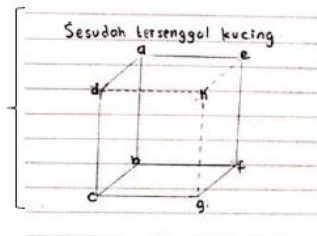 Sesudah tersenggol kucing
a e
d k
b f
c g.